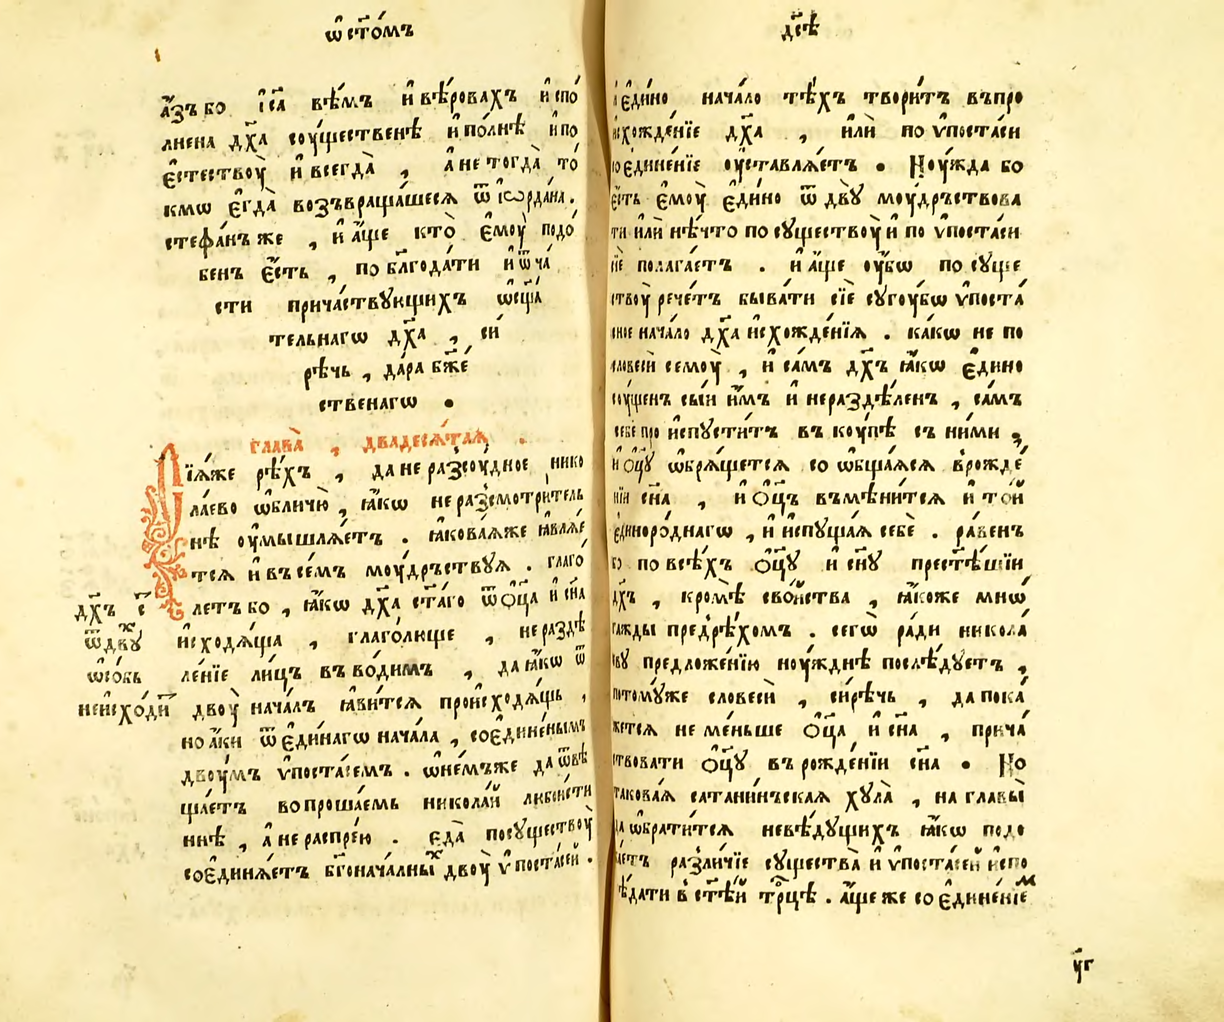 ѡ҆ ст҃о́мъ
а҆́зъ бо і҆с҃а вѣ́мъ и҆ вѣ́ровахъ и҆ спо́
лнена дх҃а соу́щественѣ и҆ по́лнѣ и҆ по
є҆стествоу̀ и҆ всегда̀ , а҆ не тогда̀ то́
кмѡ є҆гда̀ возъвраща́шеся ѿ і҆ѡрда́на .
стефа́нъ же , и҆ а҆́ще кто̀ є҆моу̀ подо́
бенъ є҆́сть , по блг҃ода́ти и҆ ѿ ча́
сти прича́ствующихъ ѡ҆сщ҃а́
тельнагѡ дх҃а , си́
рѣчь , да́ра бж҃е́
ственагѡ .
глава̀ , двадеся́таѧ .
Лїѧ́же рѣ́хъ , да не разсоу́дное нико
ла́ево ѡ҆бличю̀ , ꙗ҆́кѡ не разсмотри́тель
нѣ оу҆мышлѧ́етъ . ꙗ҆́коваѧже ꙗ҆влѧ́е
тсѧ и҆ въ се́мъ моу́дръствуѧ . глаго́
летъ бо , ꙗ҆́кѡ дх҃а ст҃а́го ѿ ѻ҆ц҃а и҆ сн҃а
и҆сходѧ́ща , глаго́лище , не раздѣ
ле́нїе ли́цъ въво́димъ , да ꙗ҆́кѡ ѿ
двоу̀ нача́лъ ꙗ҆ви́тсѧ происходѧ́щь ,
но а҆́ки ѿ є҆ди́нагѡ нача́ла , соє҆дине́нымъ
двоу́мъ ѵ҆поста́семъ . ѡ҆ не́мъже да ѿвѣ
ща́етъ вопроша́емь никола́й любои́сти
ннѣ , а҆ не распре́ю . є҆да̀ по существоу̀
соє҆динѧ́етъ бг҃онача́лны двоу̀ ѵ҆поста́сей .
дх҃ъ с҃
ѿ двꙋ
ѡ҆со́бь
неи҆схо́ди
дс҃ѣ
є҆ди́но нача́ло тѣ́хъ твори́тъ въ про
и҆схожде́нїе дх҃а , и҆лѝ по ѵ҆поста́си
соє҆дине́нїе оу҆ставлѧ́етъ . Ноу́жда бо
є҆́сть є҆моу̀ є҆ди́но ѿ двꙋ̀ моу́дръствова
ти и҆лѝ нѣ́что по существоу̀ и҆ по ѵ҆поста́си
сїе полага́етъ . и҆ а҆́ще оу҆́бѡ по суще
ствоу̀ рече́тъ быва́ти сїѐ сугоу́бѡ ѵ҆поста́
сное нача́ло дх҃а и҆схожде́нїѧ . ка́кѡ не по
словесѝ семоу̀ , и҆ са́мъ дх҃ъ ꙗ҆́кѡ є҆ди́но
соу́щенъ сы́и и҆̀мъ и҆ нераздѣ́ленъ , са́мъ
себе про и҆спꙋ́ститъ въ коу́пѣ съ ни́ми ,
и҆ ѻ҆ц҃ꙋ ѡ҆брѧ́щетсѧ со ѡ҆бща́ѧсѧ в рожде́
нїи сн҃а , и҆ ѻ҆ц҃ъ въ мѣни́тсѧ и҆ то́й
є҆диноро́днагѡ , и҆ и҆спꙋща́ѧ себѐ . ра́венъ
бо по всѣ́хъ ѻ҆ц҃ꙋ и҆ сн҃ꙋ прест҃ѣ́шїи
дх҃ъ , кро́мѣ сво́йства , ꙗ҆́коже мнѡ́
гажды предрѣ́хомъ . сегѡ̀ ра́ди никола́
евꙋ предложе́нїю ноу́жднѣ послѣ́дꙋетъ ,
потомꙋ́же словесѝ , си́рѣчь , да пока́
жетсѧ не ме́ньше ѻ҆ц҃а и҆ сн҃а , прича́
ствовати ѻ҆ц҃ꙋ въ рожде́нїи сн҃а . Но
такова́ѧ сатани́нъскаѧ хꙋла̀ , на главы̀
да ѡ҆брати́тсѧ невѣ́дущихъ ꙗ҆́кѡ подо
ба́етъ разли́чїе существа̀ и҆ ѵ҆поста́сей и҆спо
вѣ́дати в ст҃ѣ́й трⷪ҇цѣ . а҆́ще же соє҆дине́нїем
уг҃